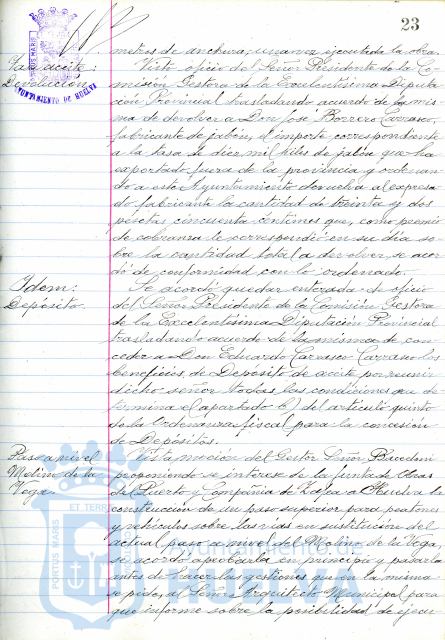 23
metros de anchura, una vez ejecutada la obra.
Tasa aceite: Devolución
Visto oficio del Señor Presidente de la Co-
misión Gestora de la Excelentísima Diputa-
ción Provincial trasladando acuerdo de la mis-
ma de devolver a Don José Borrero Carrasco,
fabricante de jabón, el importe correspondiente
a la tasa de diez mil kilos de jabón que ha
exportado fuera de la provincia y ordenan-
do a este Ayuntamiento devuelva al expresa-
do fabricante la cantidad de treinta y dos
pesetas cincuenta céntimos que, como premio
de cobranza le correspondió en su día so-
bre la cantidad total a devolver, se acor-
dó de conformidad con lo ordenado.
Idem:
Depósito.
Se acordó quedar enterada de oficio
del Señor Presidente de la Comisión Gestora
de la Excelentísima Diputación Provincial
trasladando acuerdo de la misma de con-
ceder a Don Eduardo Carrasco Carrasco los
beneficios de Depósito de aceite por reunir
dicho señor todas las condiciones que de-
termina el apartado b) del artículo quinto
de la Ordenanza fiscal para la concesión
de Depósitos.
Paso a nivel
Molino de la
Vega.
Vista moción del Gestor Señor
proponiendo se interese de la Junta de Obras
del Puerto y Compañía de Zafra a Huelva la
construcción de un paso superior para peatones
y vehículos sobre las vías en sustitución del
actual paso a nivel del Molino de la Vega,
se acordó aprobarla en principio y pasarla
antes de hacer las gestiones que en la misma
se pide, al Señor Arquitecto Municipal para
que informe sobre la posibilidad de ejecu-
PORTUS MARIS
AYUNTAMIENTO DE HUELVA
ET TERR
PORTUS MARIS
Ayuntamiento de